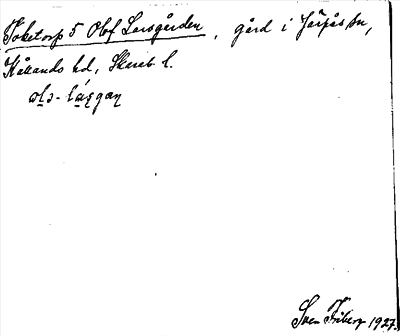 Toketorp 5 Olof Larsgården, gård i Järpås sn,
Kållands hd, Skarab l.
Sven Friberg 1927.